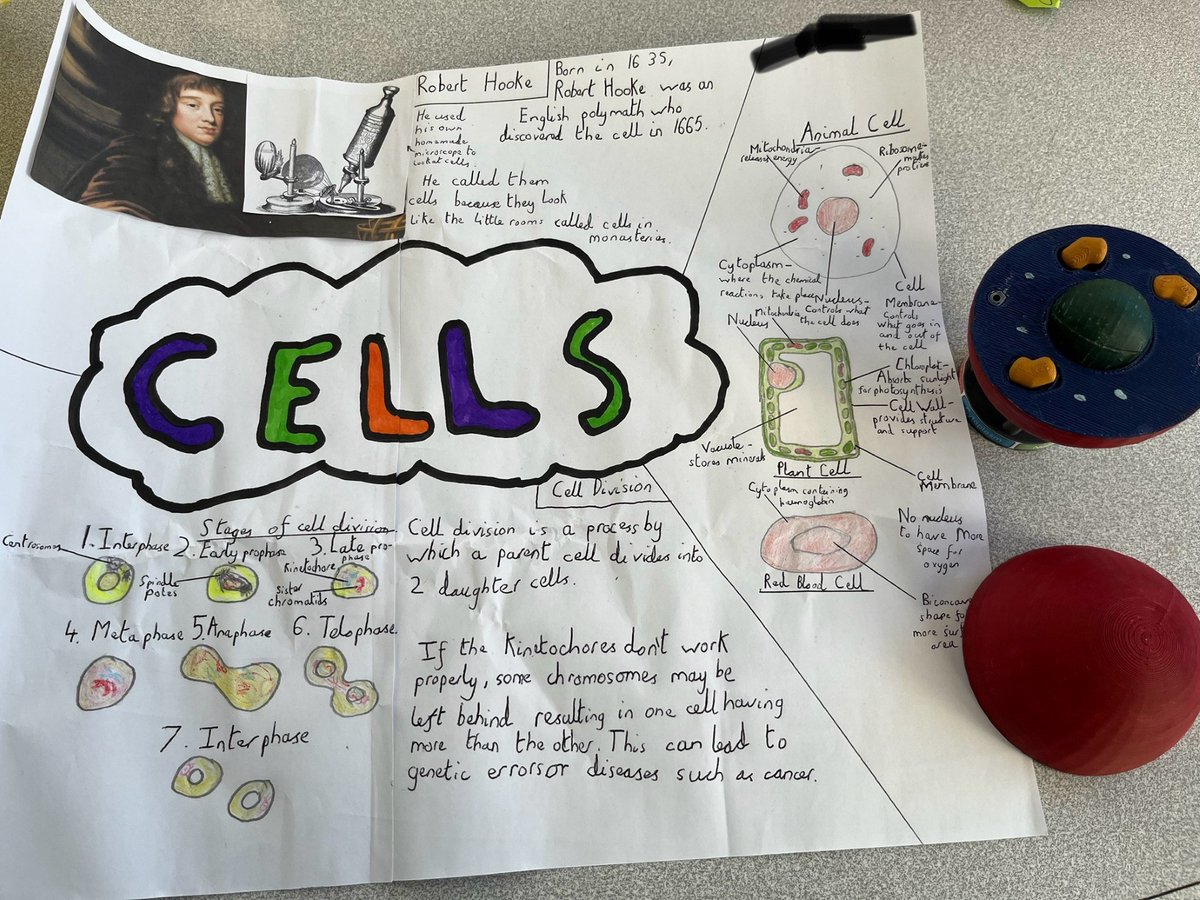 Robert Hooke
Born in 1635,
Robert Hooke was an
English polymath who
discovered the cell in 1665.
He used
his own
homemade
microscope to
look at cells.
He called them
cells because they look
like the little rooms called cells in
monasteries.
CELLS
Animal Cell
Mitochondria
release energy
Ribosome-
makes
protien
Cytoplasm-
where the chemical
reactions take place
Nucleus-
controls what
the cell does
Cell
Membrane-
controls
what goes in
and out of
the cell
Nucleus
Mitochondria
Chloroplast-
Absorbs sunlight
for photosynthesis
Cell Wall-
provides structure
and support
Vacuole-
stores minerals
Cell
Membrane
Plant Cell
Cytoplasm containing
haemoglobin
No nucleus
to have more
space for
oxygen
Red Blood Cell
Biconcave
shape for
more
area
Cell Division
Cell division is a process by
which a parent cell divides into
2 daughter cells.
If the Kinetochores don't work
properly, some chromosomes may be
left behind resulting in one cell having
more than the other. This can lead to
genetic errors or diseases such as cancer.
Stages of cell division
1. Interphase
Centrosomes
2. Early prophase
Spindle
Potes
3. Late pro-
phase
Kinetochore
sister
chromatids
4. Metaphase
5. Anaphase
6. Telophase.
7. Interphase